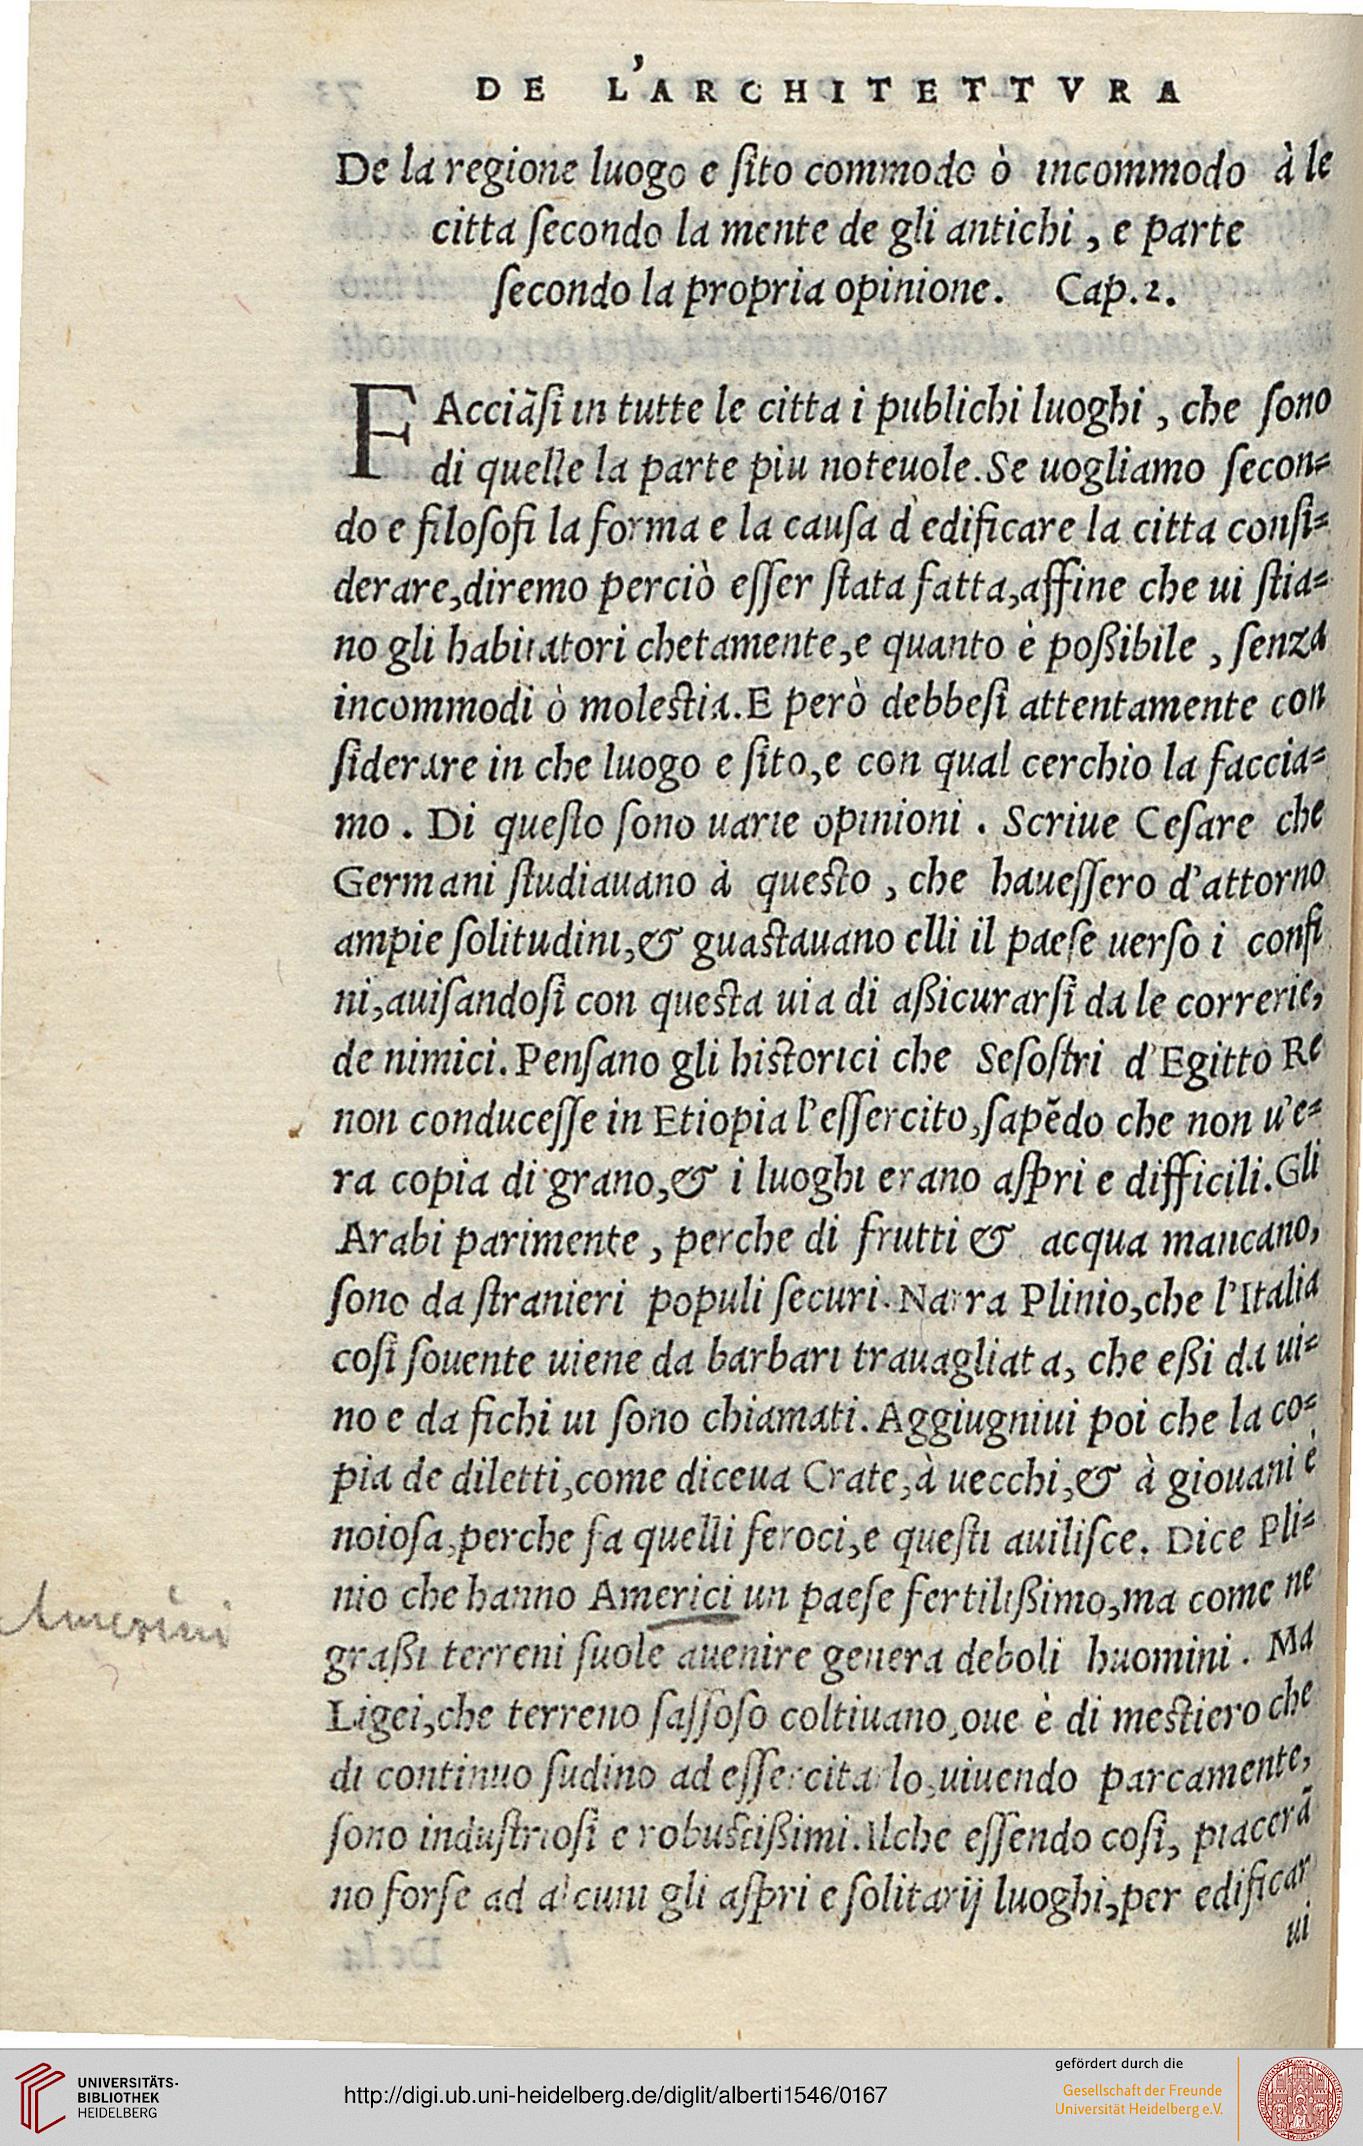 DE L'ARCHITETTVRA
De la regione luogo e ſito commodo ò incommodo à le
citta ſecondo la mente de gli antichi , e parte
ſecondo la propria opinione. Cap.2.
FAcciãſi in tutte le citta i publichi luoghi , che ſono
di quelle la parte piu noteuole.Se uogliamo ſecon=
do e filoſofi la forma e la cauſa d'edificare la citta conſi=
derare,diremo perciò eſſer ſtata fatta,affine che ui ſtia=
no gli habitatori chetamente,e quanto è poßibile , ſenza
incommodi ò moleſtia.E però debbeſi attentamente con
ſiderare in che luogo e ſito,e con qual cerchio la faccia=
mo . Di queſto ſono uarie opinioni . Scriue Ceſare che
Germani ſtudiauano à queſto , che haueſſero d'attorno
ampie ſolitudini,& guaſtauano elli il paeſe uerſo i confi
ni,auiſandoſi con queſta uia di aßicurarſi da le correrie,
de nimici.Penſano gli hiſtorici che Seſoſtri d'Egitto Re
non conduceſſe in Etiopia l'eſſercito,ſapẽdo che non u'e=
ra copia di grano,& i luoghi erano aſpri e difficili.Gli
Arabi parimente , perche di frutti & acqua mancano,
ſono da ſtranieri populi ſecuri.Narra Plinio,che l'Italia
coſi ſouente uiene da barbari trauagliata, che eßi da ui=
no e da fichi ui ſono chiamati.Aggiugniui poi che la co=
pia de diletti,come diceua Crate,à uecchi,& à giouani è
noioſa,perche fa quelli feroci,e queſti auiliſce. Dice Pli=
nio che hanno Americi un paeſe fertilißimo,ma come ne
Amerini
graßi terreni ſuole auenire genera deboli huomini . Ma
Ligei,che terreno ſaſſoſo coltiuano,oue è di meſtiero che
di continuo ſudino ad eſſercitarlo,uiuendo parcamente,
ſono induſtrioſi e robuſtißimi.Ilche eſſendo coſi, piacerã
no forſe ad alcuni gli aſpri e ſolitarij luoghi,per edificar
ui
UNIVERSITÄTS-
BIBLIOTHEK
HEIDELBERG
http://digi.ub.uni-heidelberg.de/diglit/alberti1546/0167
gefördert durch die
Gesellschaft der Freunde
Universität Heidelberg e.V.